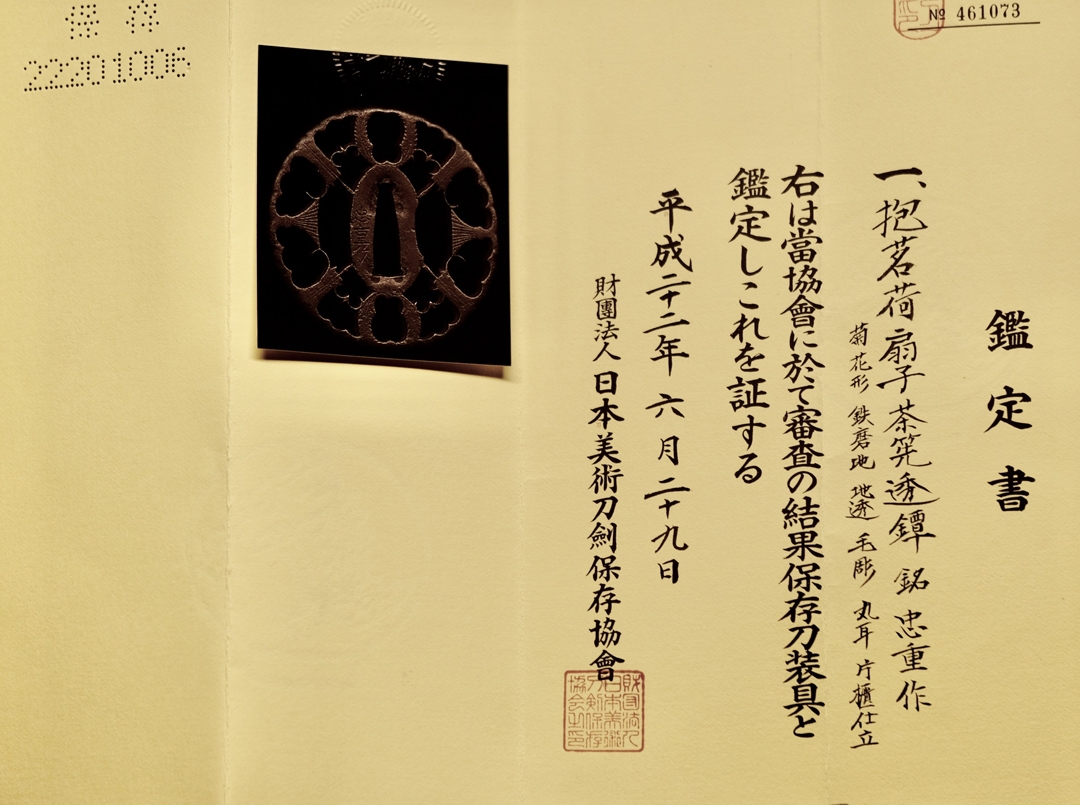 № 461073
鑑定書
一、抱茗荷扇子茶筅透鐔 銘 忠重作
菊花形 鉄磨地 地透 毛彫 丸耳 片櫃仕立
右は當協會に於て審査の結果保存刀装具と
鑑定しこれを証する
平成二十二年 六月二十九日
財團法人 日本美術刀劍保存協會
保存
22201006